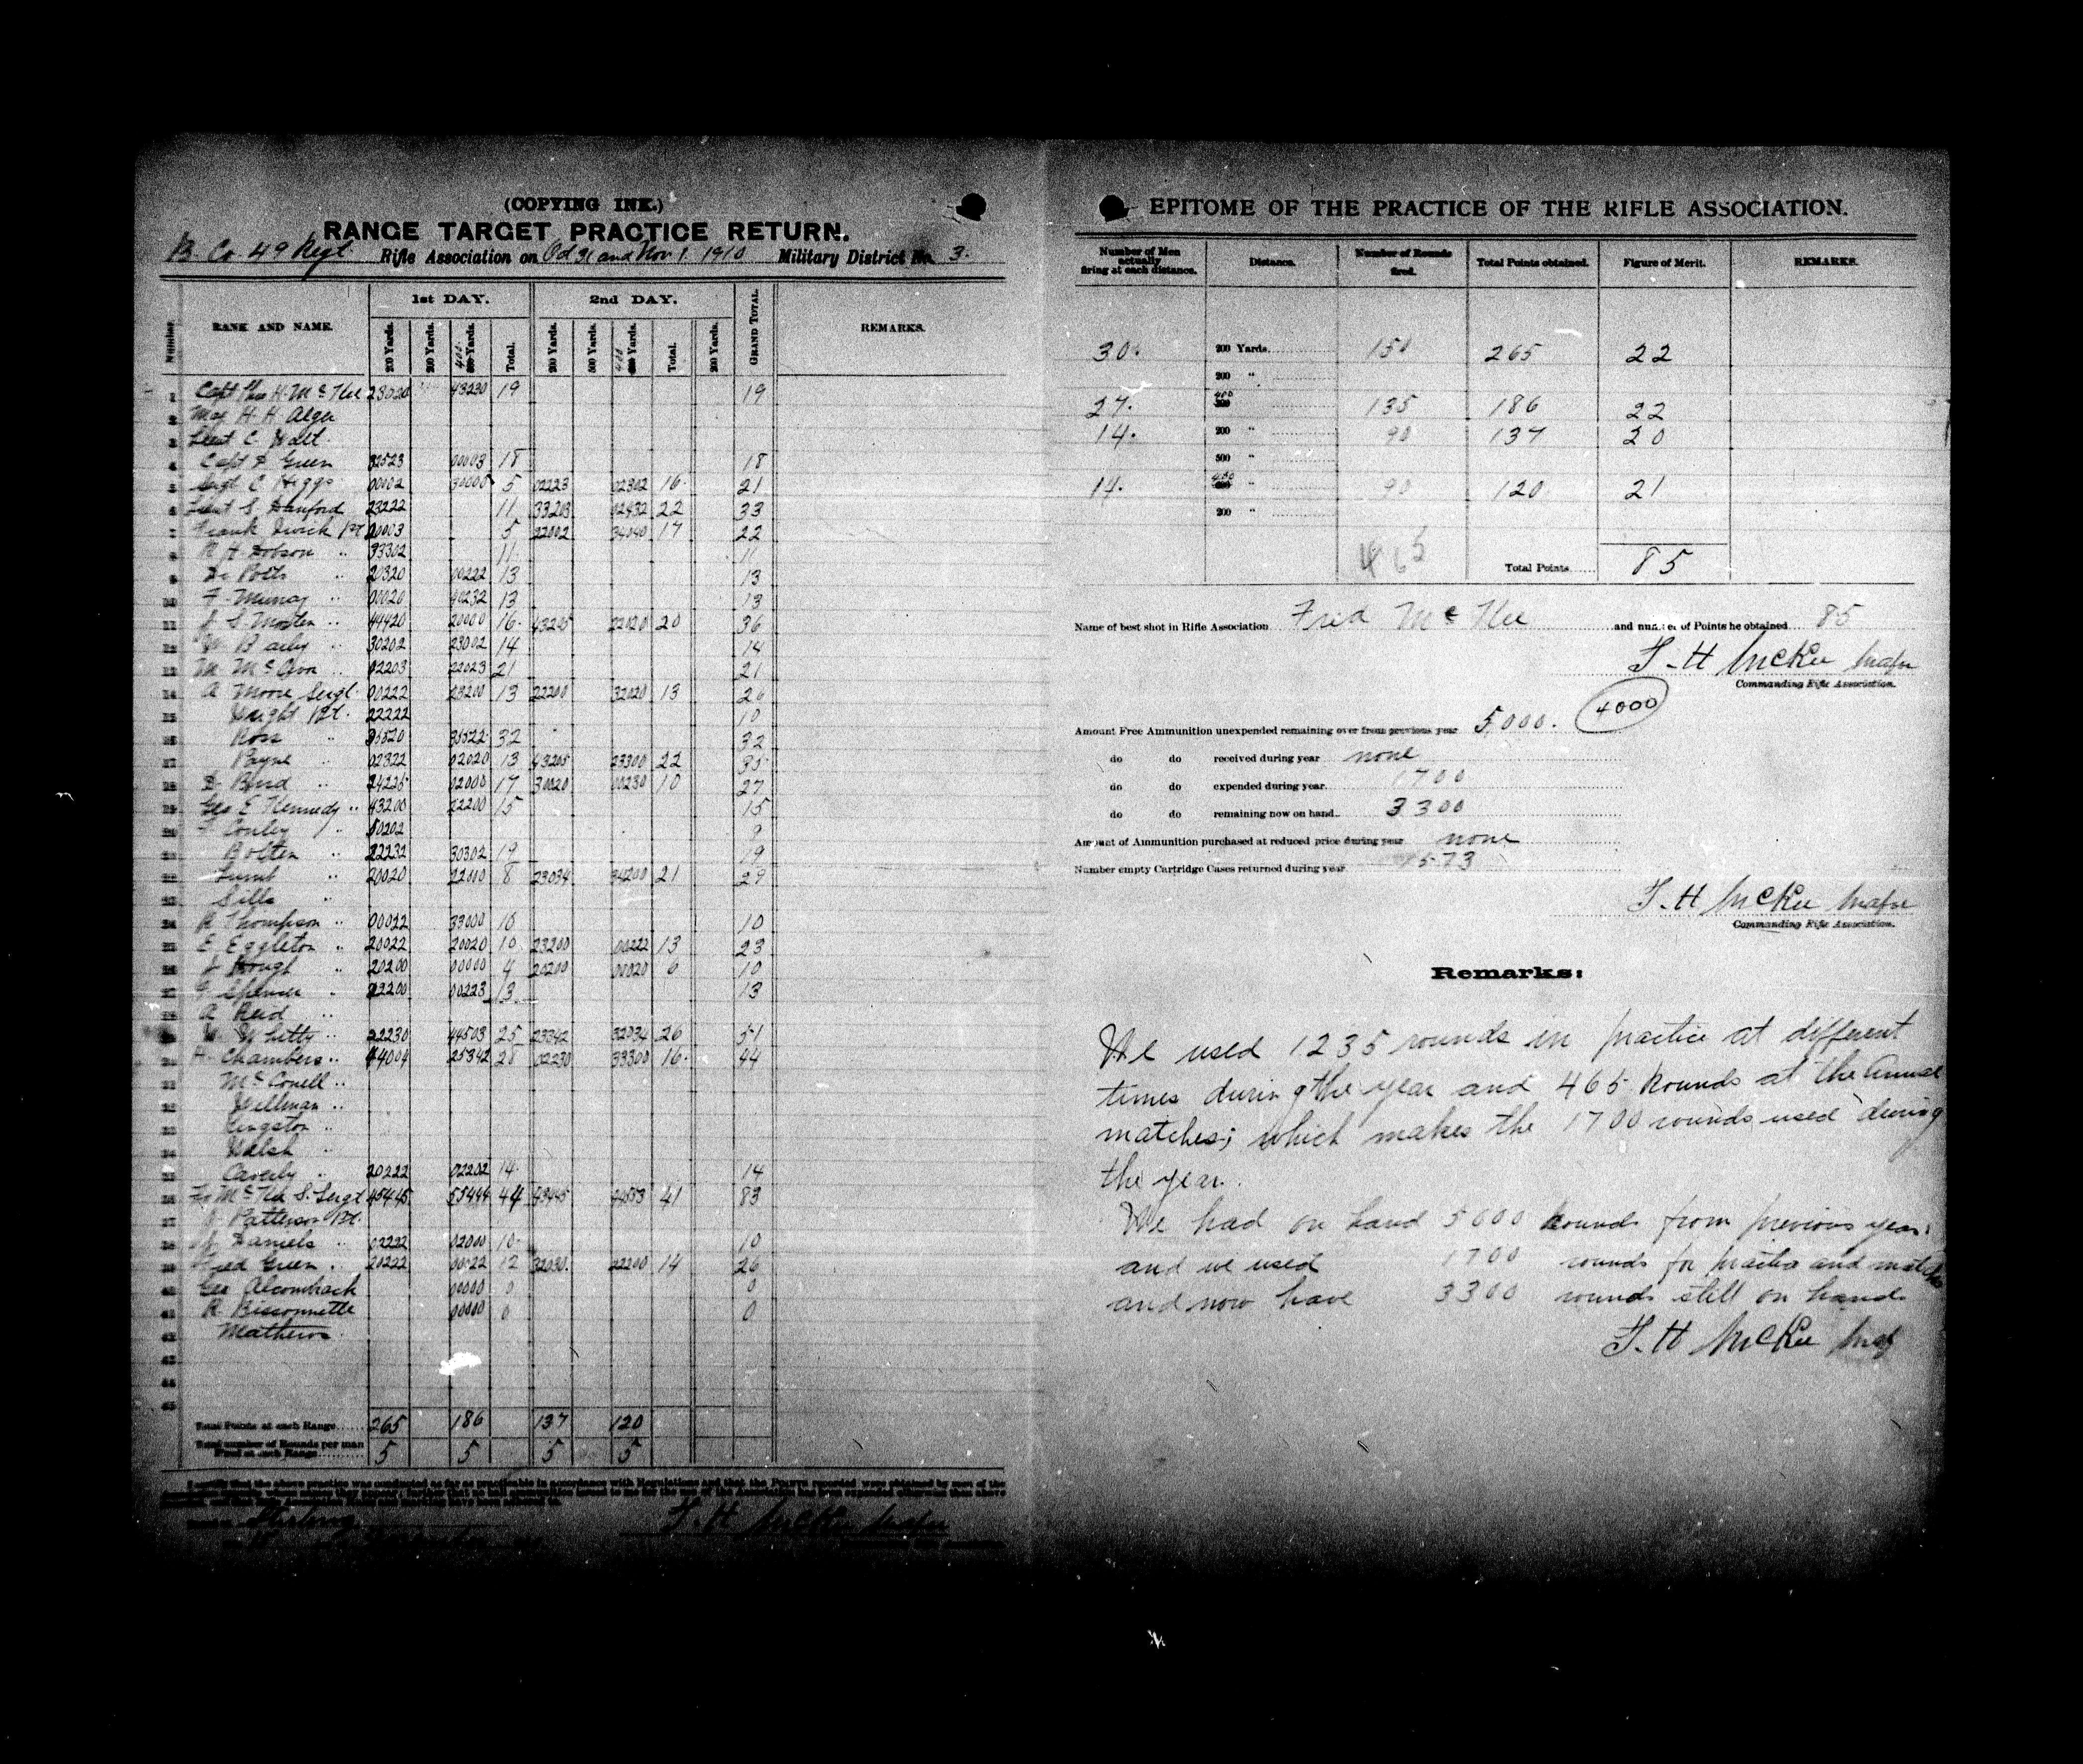 (COPYING INK.)
RANGE TARGET PRACTICE RETURN.
B. Co. 49 Regt. Rifle Association on Oct 31 and Nov. 1. 1910 Military District No. 3.
Number RANK AND NAME. 1st DAY. 2nd DAY. GRAND TOTAL. REMARKS.
200 Yards. 200 Yards. 400 Yards. Total. 200 Yards. 500 Yards. 400 Yards. Total. 200 Yards.
1 Capt H. Mc Kee 23020 43230 19 19
2 Maj H. H. Alger
3 Lieut C. Walt
4 Capt D Green 32523 00003 18 18
5 Sergt C Higgs 00002 30000 5 02223 02302 16 21
6 Lieut S. Danford 23222 11 33203 02432 22 33
7 Frank Pt 00003 5 22002 34040 17 22
8 R H Dobson " 33302 11 11
9 Potts " 20320 00222 13 13
10 F. Murray " 00020 40232 13 13
11 J. S. Mosten " 44420 20000 16 22020 20 36
12 30202 23002 14 14
13 M. 02203 22023 21 21
14 A Moore Sergt. 00222 23200 13 22200 32020 13 26
15 Wright Pt. 22222 10
16 Ross " 35520 35522 32 32
17 Payne " 02322 02020 13 43205 23300 22 35
18 D. Burd " 24225 02000 17 30020 00230 10 27
19 Geo E Kennedy " 43200 22200 15 15
20 F Conley " 50202 9
21 Bolten " 22232 30302 19 19
22 20020 22000 8 23034 34200 21 29
23 Sills "
24 R Thompson " 00022 33000 10 10
25 E Eggleton " 20022 20020 10 23200 00222 13 23
26 J Hough " 20200 00000 4 20200 00020 6 10
27 Spencer " 22200 00223 13 13
28 A Reid "
29 22230 44503 25 23342 32034 26 51
30 H. Chambers " 44004 25342 28 02230 33300 16 44
31 Mc Conell "
32 Wellman "
33 Kingston "
34 Walsh "
35 Caverly " 20222 02202 14 14
36 Mc Kee S. Sergt 45445 55444 44 43445 41 83
37 J Patterson Pt.
38 Daniels " 02222 02000 10 10
39 Fred Green " 20222 00422 12 32030 22200 14 26
40 Geo Alcomback 00000 0 0
41 R. Bissonnette 00000 0 0
42 Mathews
43
44
45
Total Points at each Range 265 186 137 120
Total number of Rounds per man Fired at each Range 5 5 5 5
I certify that the above practice was conducted as far as practicable in accordance with Regulations and that the
Stirling
T. H McKee Major
EPITOME OF THE PRACTICE OF THE RIFLE ASSOCIATION.
Number of Men actually firing at each distance. Distance. Number of Rounds fired. Total Points obtained. Figure of Merit. REMARKS.
30. 200 Yards 150 265 22
200 "
27. 400 135 186 22
14. 200 " 90 137 20
500 "
14. 400 " 90 120 21
200 "
465 Total Points 85
Name of best shot in Rifle Association Fred McKee and number of Points he obtained 85
T. H McKee Major
Commanding Rifle Association.
4000
Amount Free Ammunition unexpended remaining over from previous year 5,000.
do do received during year none
do do expended during year 1700
do do remaining now on hand 3300
Amount of Ammunition purchased at reduced price during year none
Number empty Cartridge Cases returned during year 573
T. H McKee Major
Commanding Rifle Association.
Remarks:
We used 1235 rounds in practice at different
times during the year and 465 Rounds at the Annual
matches; which makes the 1700 rounds used during
the year.
We had on hand 5000 Rounds from previous year.
and we used 1700 rounds for practice and matches
and now have 3300 rounds still on hand
T. H McKee Maj